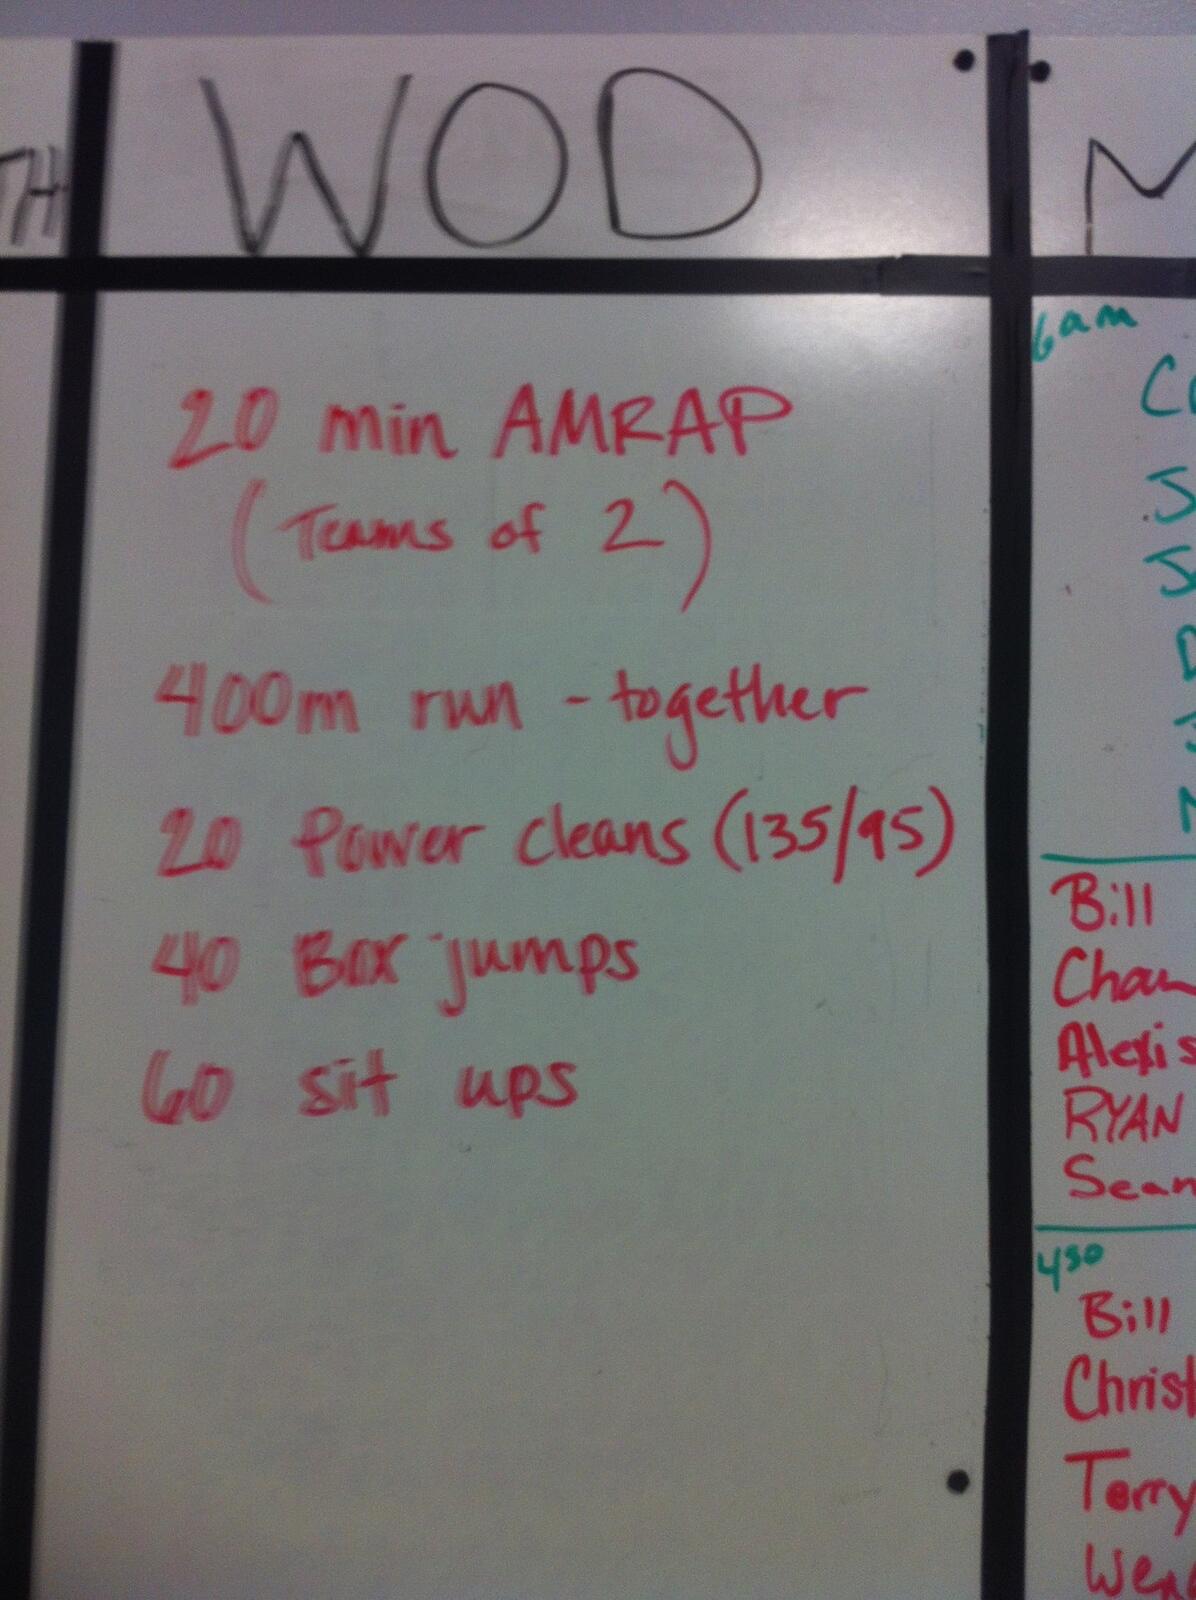 TH
WOD
M
20 min AMRAP
(Teams of 2)
400m run - together
20 Power cleans (135/95)
40 Box jumps
60 sit ups
6am
Bill
Alexis
RYAN
Sean
430
Bill
Christ
Terry